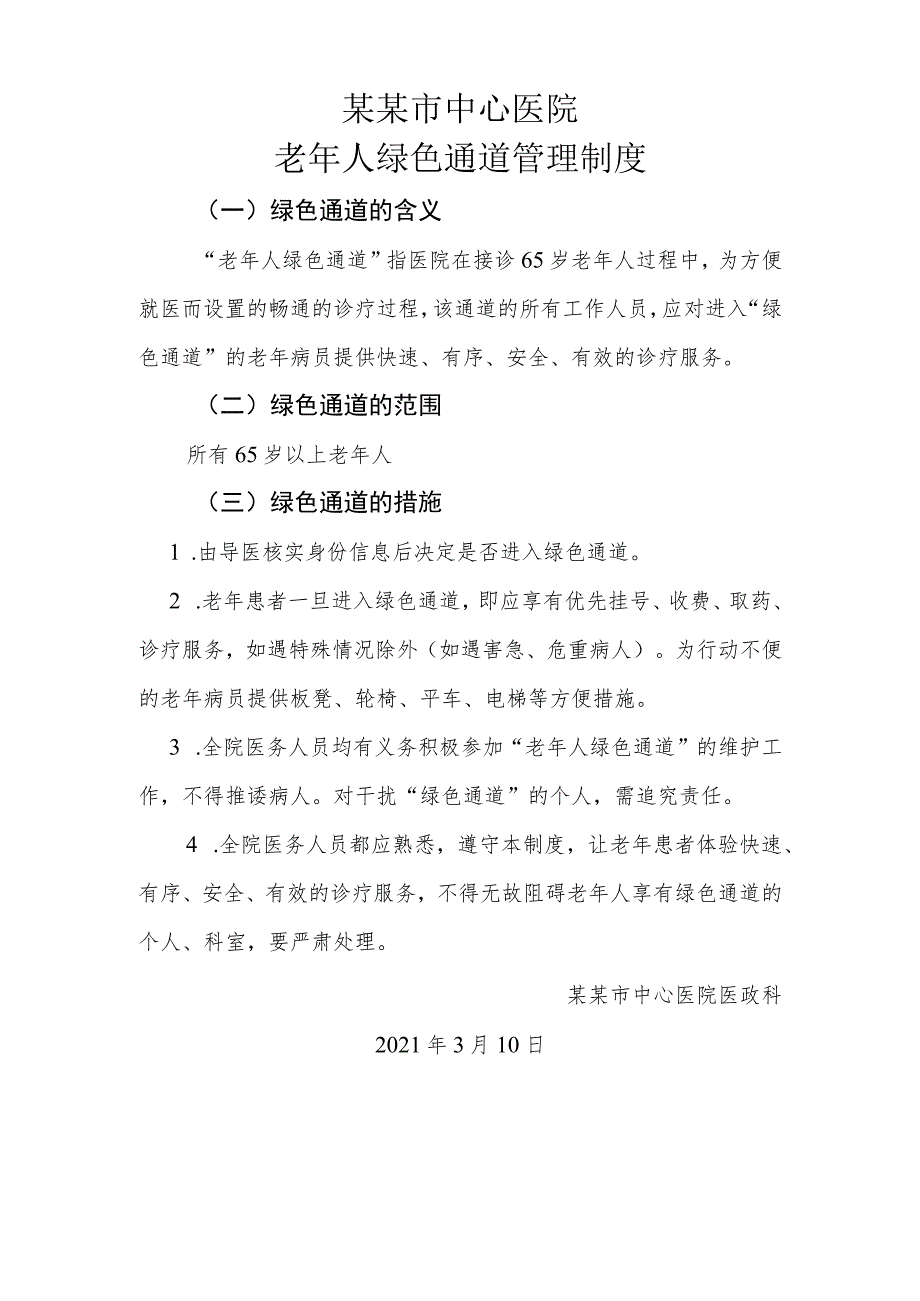 某某市中心医院
老年人绿色通道管理制度
（一）绿色通道的含义
“老年人绿色通道”指医院在接诊 65 岁老年人过程中，为方便
就医而设置的畅通的诊疗过程，该通道的所有工作人员，应对进入“绿
色通道”的老年病员提供快速、有序、安全、有效的诊疗服务。
（二）绿色通道的范围
所有 65 岁以上老年人
（三）绿色通道的措施
1 .由导医核实身份信息后决定是否进入绿色通道。
2 .老年患者一旦进入绿色通道，即应享有优先挂号、收费、取药、
诊疗服务，如遇特殊情况除外（如遇害急、危重病人）。为行动不便
的老年病员提供板凳、轮椅、平车、电梯等方便措施。
3 .全院医务人员均有义务积极参加“老年人绿色通道”的维护工
作，不得推诿病人。对干扰“绿色通道”的个人，需追究责任。
4 .全院医务人员都应熟悉，遵守本制度，让老年患者体验快速、
有序、安全、有效的诊疗服务，不得无故阻碍老年人享有绿色通道的
个人、科室，要严肃处理。
某某市中心医院医政科
2021 年 3 月 10 日